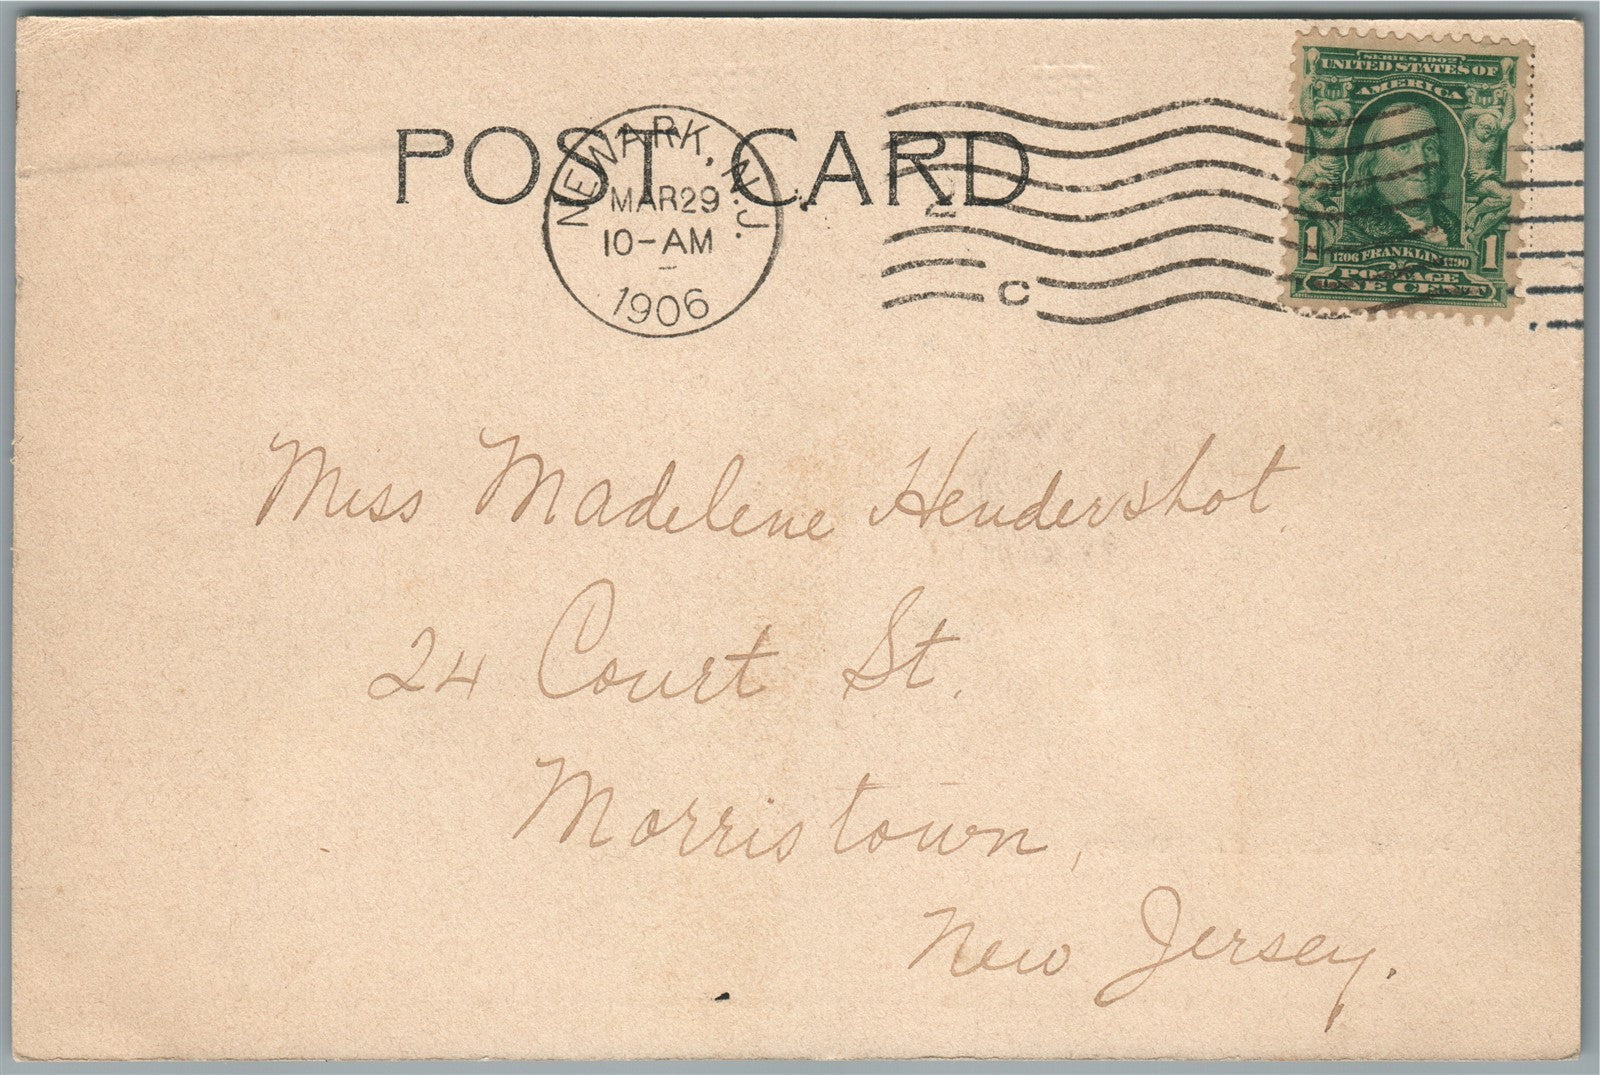 SERIES 1902
UNITED STATES OF
AMERICA
1706 FRANKLIN 1790
1 1
POSTAGE
ONE CENT
POST CARD
NEWARK, N.J.
MAR 29
10-AM
1906
2
C
Miss Madelene Hendershot.
24 Court St.
Morristown,
New Jersey.